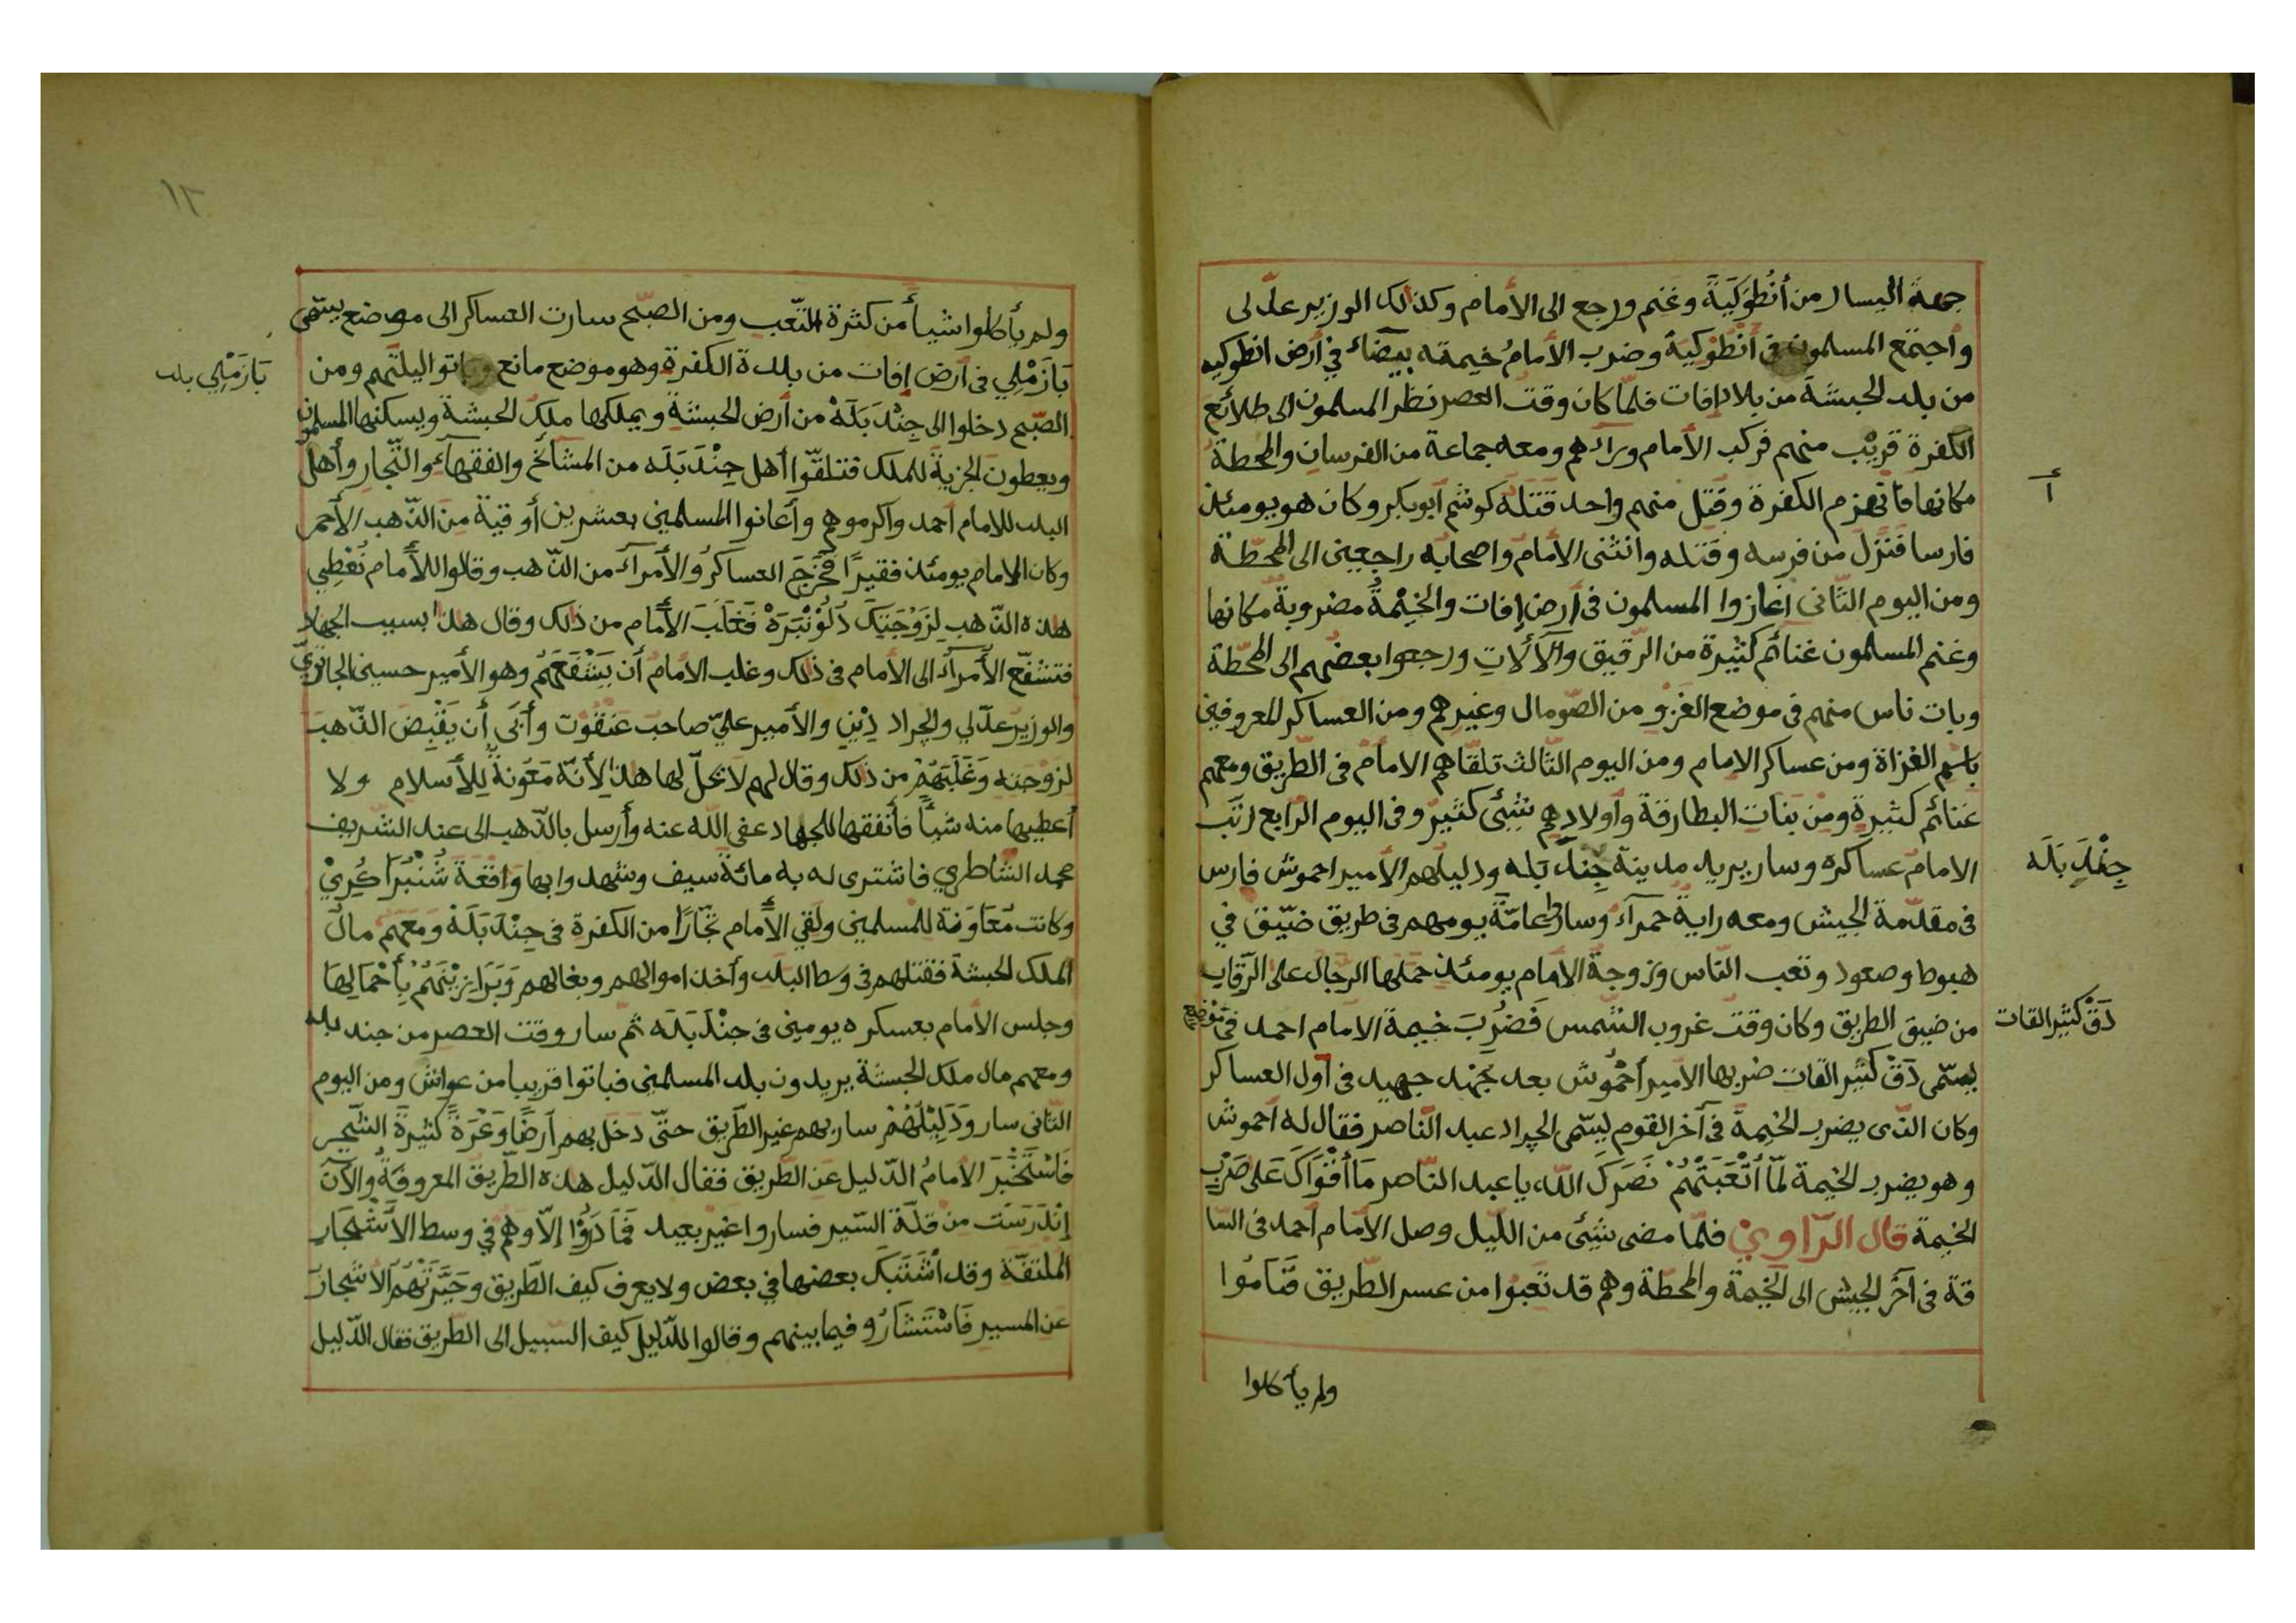 جهة اليسار من أَنْطُوَكِيَةَ وغنم ورجع الى الأمام وكذالك الوزير عدّلى
واجتمع المسلمون في أَنْطُوكِيَة وضرب الأمامُ خيمته بيضآء في أرض انطوكيه
من بلد الحبشة من بلاد إفات فلمّا كان وقت العصر نظر المسلمون الى طلائع
الكفرة قريب منهم فركب الأمام ورآءهم ومعه جماعة من الفرسان والمحطة
أ
مكانها فانهزم الكفرة وقُتِل منهم واحد قتله كوشم أبوبكر وكان هو يومئذ
فارسا فنزل من فرسه وقتله وانثنى الأمام واصحابه راجعين الى المحطّة
ومن اليوم الثّانى اغازوا المسلمون في أرض إفات والخيْمةُ مضروبة مكانها
وغنم المسلمون غنائم كثيرة من الرّقيق والآلات ورجعوا بعضهم الى المحطّة
وبات ناس منهم في موضع الغزو من الصّومال وغيرهم ومن العساكر المعروفين
باسم الغزاة ومن عساكر الإمام ومن اليوم الثّالث تلقّاهم الامام في الطّريق ومعهم
غنائم كثيرة ومن بنات البطارقة وأولادِهم شئ كثير وفي اليوم الرّابع رتّب
الامام عساكره وسار يريد مدينة جِنْدَ بَله ودليلهم الأمير احموش فارس
جِنْدَ بَلَه
في مقدّمة الجيش ومعه راية حمرآء وساروا عامّة يومهم في طريق ضيّق في
هبوط وصعود وتعب النّاس وزوجة الإمام يومئذ حملها الرّجال على الرّقاب
من ضيق الطريق وكان وقت غروب الشّمس فَضُرِبَ خيمة الامام احمد في مَوْضِع
دَقْ كثير القات
يسمّى دَقْ كثير القات ضربها الأمير أحْمُوش بعد جَهْد جهيد في أول العساكر
وكان الذى يضرب الخيمة في آخر القوم يسمّى الجراد عبد النّاصر فقال له احموش
وهو يضرب الخيمة لمّا أَتْعَبَتْهُمْ نَصَرَكَ الله يا عبد النّاصر مَا أَقْوَاكَ عَلى ضَرْبِ
الخيمة قال الرّاوي فلمّا مضى شئ من اللّيل وصل الأمام أحمد في السّا
قة في آخر الجيش الى الخيمة والمحطّة وهم قد تعبُوا من عسر الطّريق فَنَامُوا
ولم يأكلوا
١٢
ولم يأكلوا شيأ من كثرة التّعب ومن الصّبح سارت العساكر الى موضع يسمّى
بَازَمْلِي في أرض إفات من بلدة الكفرة وهو موضع مانع وباتوا ليلتهم ومن
بَازَمْلِي بلد
الصّبح دخلوا الى جِنْدَ بَلَهْ من أرض الحبشة ويملكها ملك الحبشة ويسكنها المسلمون
ويعطون الجزية للملك فتلقّوا أهل جِنْدَ بَلَه من المشآئخ والفقهآء والتّجار وأهل
البلد للامام أحمد وأكرموهم وأعانوا المسلمين بعشرين أوقية من الذّهب الأحمر
وكان الإمام يومئذ فقيرًا فَخَرَجَ العساكرُ والأمرآء من الذّهب وقالوا للأمام نُعْطِي
هذه الذّهب لِزَوْجَتِكَ دَلْوَنْبَرَهْ فَغَلَبَ الأمام من ذلك وقال هذا بسبب الجهاد
فتشفّع الأمرآء الى الأمام في ذلك وغلب الامام أن يَشْفَعَهُمْ وهو الأمير حسين الجاتري
والوزير عدّلي والجراد دِيْنِ والأمير عليّ صاحب عَنْقُوْت وأَبَى أن يَقْبِضَ الذّهبَ
لزوجته وَغَلَبَهُمْ من ذلك وقال لهم لا يحلّ لها هذا لأنّه مَعُونَةٌ للأسلام ولا
أعطيها منه شيأً فأنفقها للجهاد عفى الله عنه وأرسل بالذّهب الى عند الشّريف
محمد الشّاطري فاشترى له به مائة سيف وشهدوا بها وَاقِعَةَ شُنْبُرَا كُرِيْ
وكانت مُعَاوَنة للمسلمين ولقي الأمام تُجّارًا من الكفرة في جِنْدَ بَلَهْ وَمَعَهُمْ مال
الملك الحبشة فقتلهم في وسط البلد وأخذ اموالهم وبغالهم وَبَرَازِيْنَهُمْ بِأَحْمَالِهَا
وجلس الأمام بعسكره يومين في جِنْدَ بَلَه ثمّ سار وقت العصر من جند بله
ومعهم مال ملك الحبشة يريدون بلد المسلمين فباتوا قريبا من عواش ومن اليوم
الثّانى سار وَدَلِيْلُهُمْ سار بهم غير الطّريق حتّى دخل بهم أرضًا وَعْرَةً كثيرة الشّجر
فَاسْتَخْبَرَ الأمامُ الدّليل عن الطّريق فقال الدّليل هذه الطّريق المعروفة والآن
إنْدَرَسَت من قلّة السّير فساروا غير بعيد فَمَا دَرَوْا إلّا وهم في وسط الأشْجار
الملتفّة وقد اشْتَبَك بعضها في بعض ولا يعرف كيف الطّريق وحَيَّرَتْهُم الأشجار
عن المسير فَاسْتَشَارُو فيما بينهم وقالوا للدّليل كيف السّبيل الى الطّريق فقال الدّليل